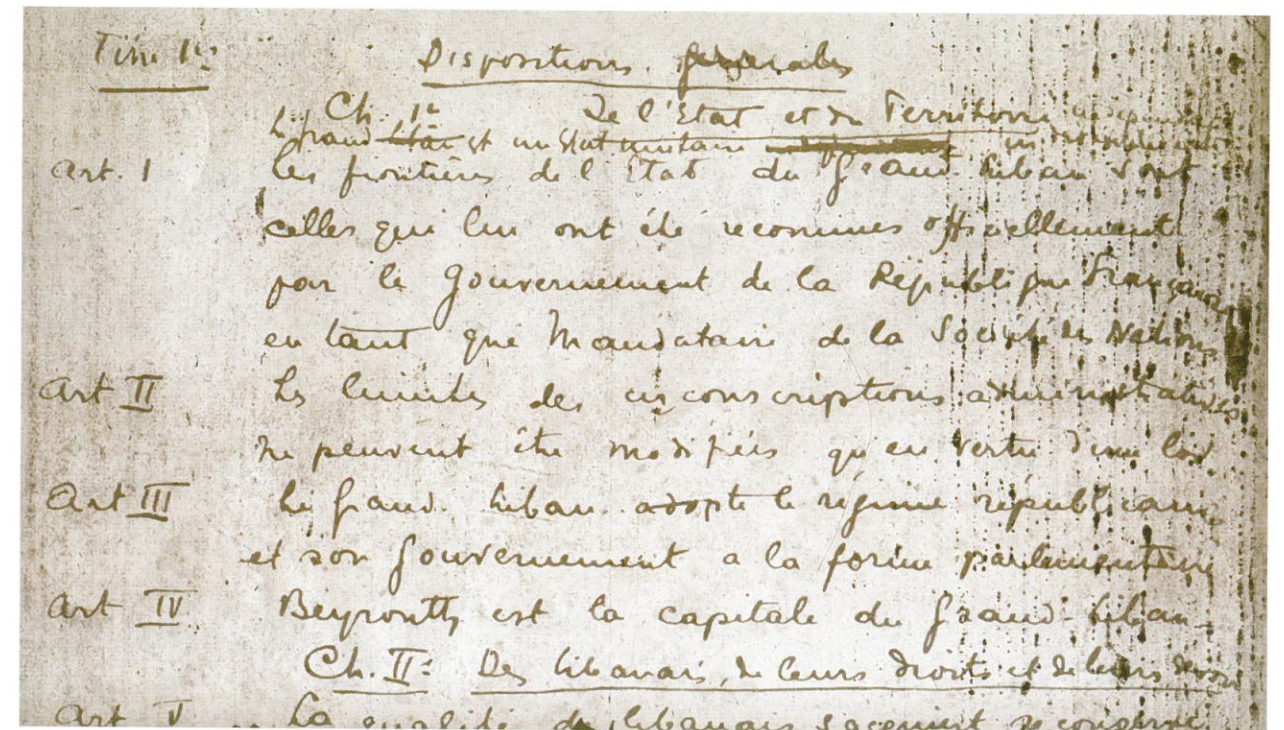 Titre 1er Dispositions générales
Ch. 1er De l'Etat et du Territoire
Le Grand Liban est un Etat unitaire
Art. I Les frontières de l'Etat du Grand Liban sont
celles qui lui ont été reconnues officiellement
par le Gouvernement de la République Française
en tant que Mandataire de la Société des Nations
Art II Les limites des circonscriptions administratives
ne peuvent être modifiées qu'en vertu d'une loi.
Art III Le Grand Liban adopte le régime républicain
et son Gouvernement a la forme parlementaire
Art IV Beyrouth est la capitale du Grand-Liban
Ch. II: Des libanais, de leurs droits et de leurs devoirs
Art V La qualité de libanais s'acquiert se conserve